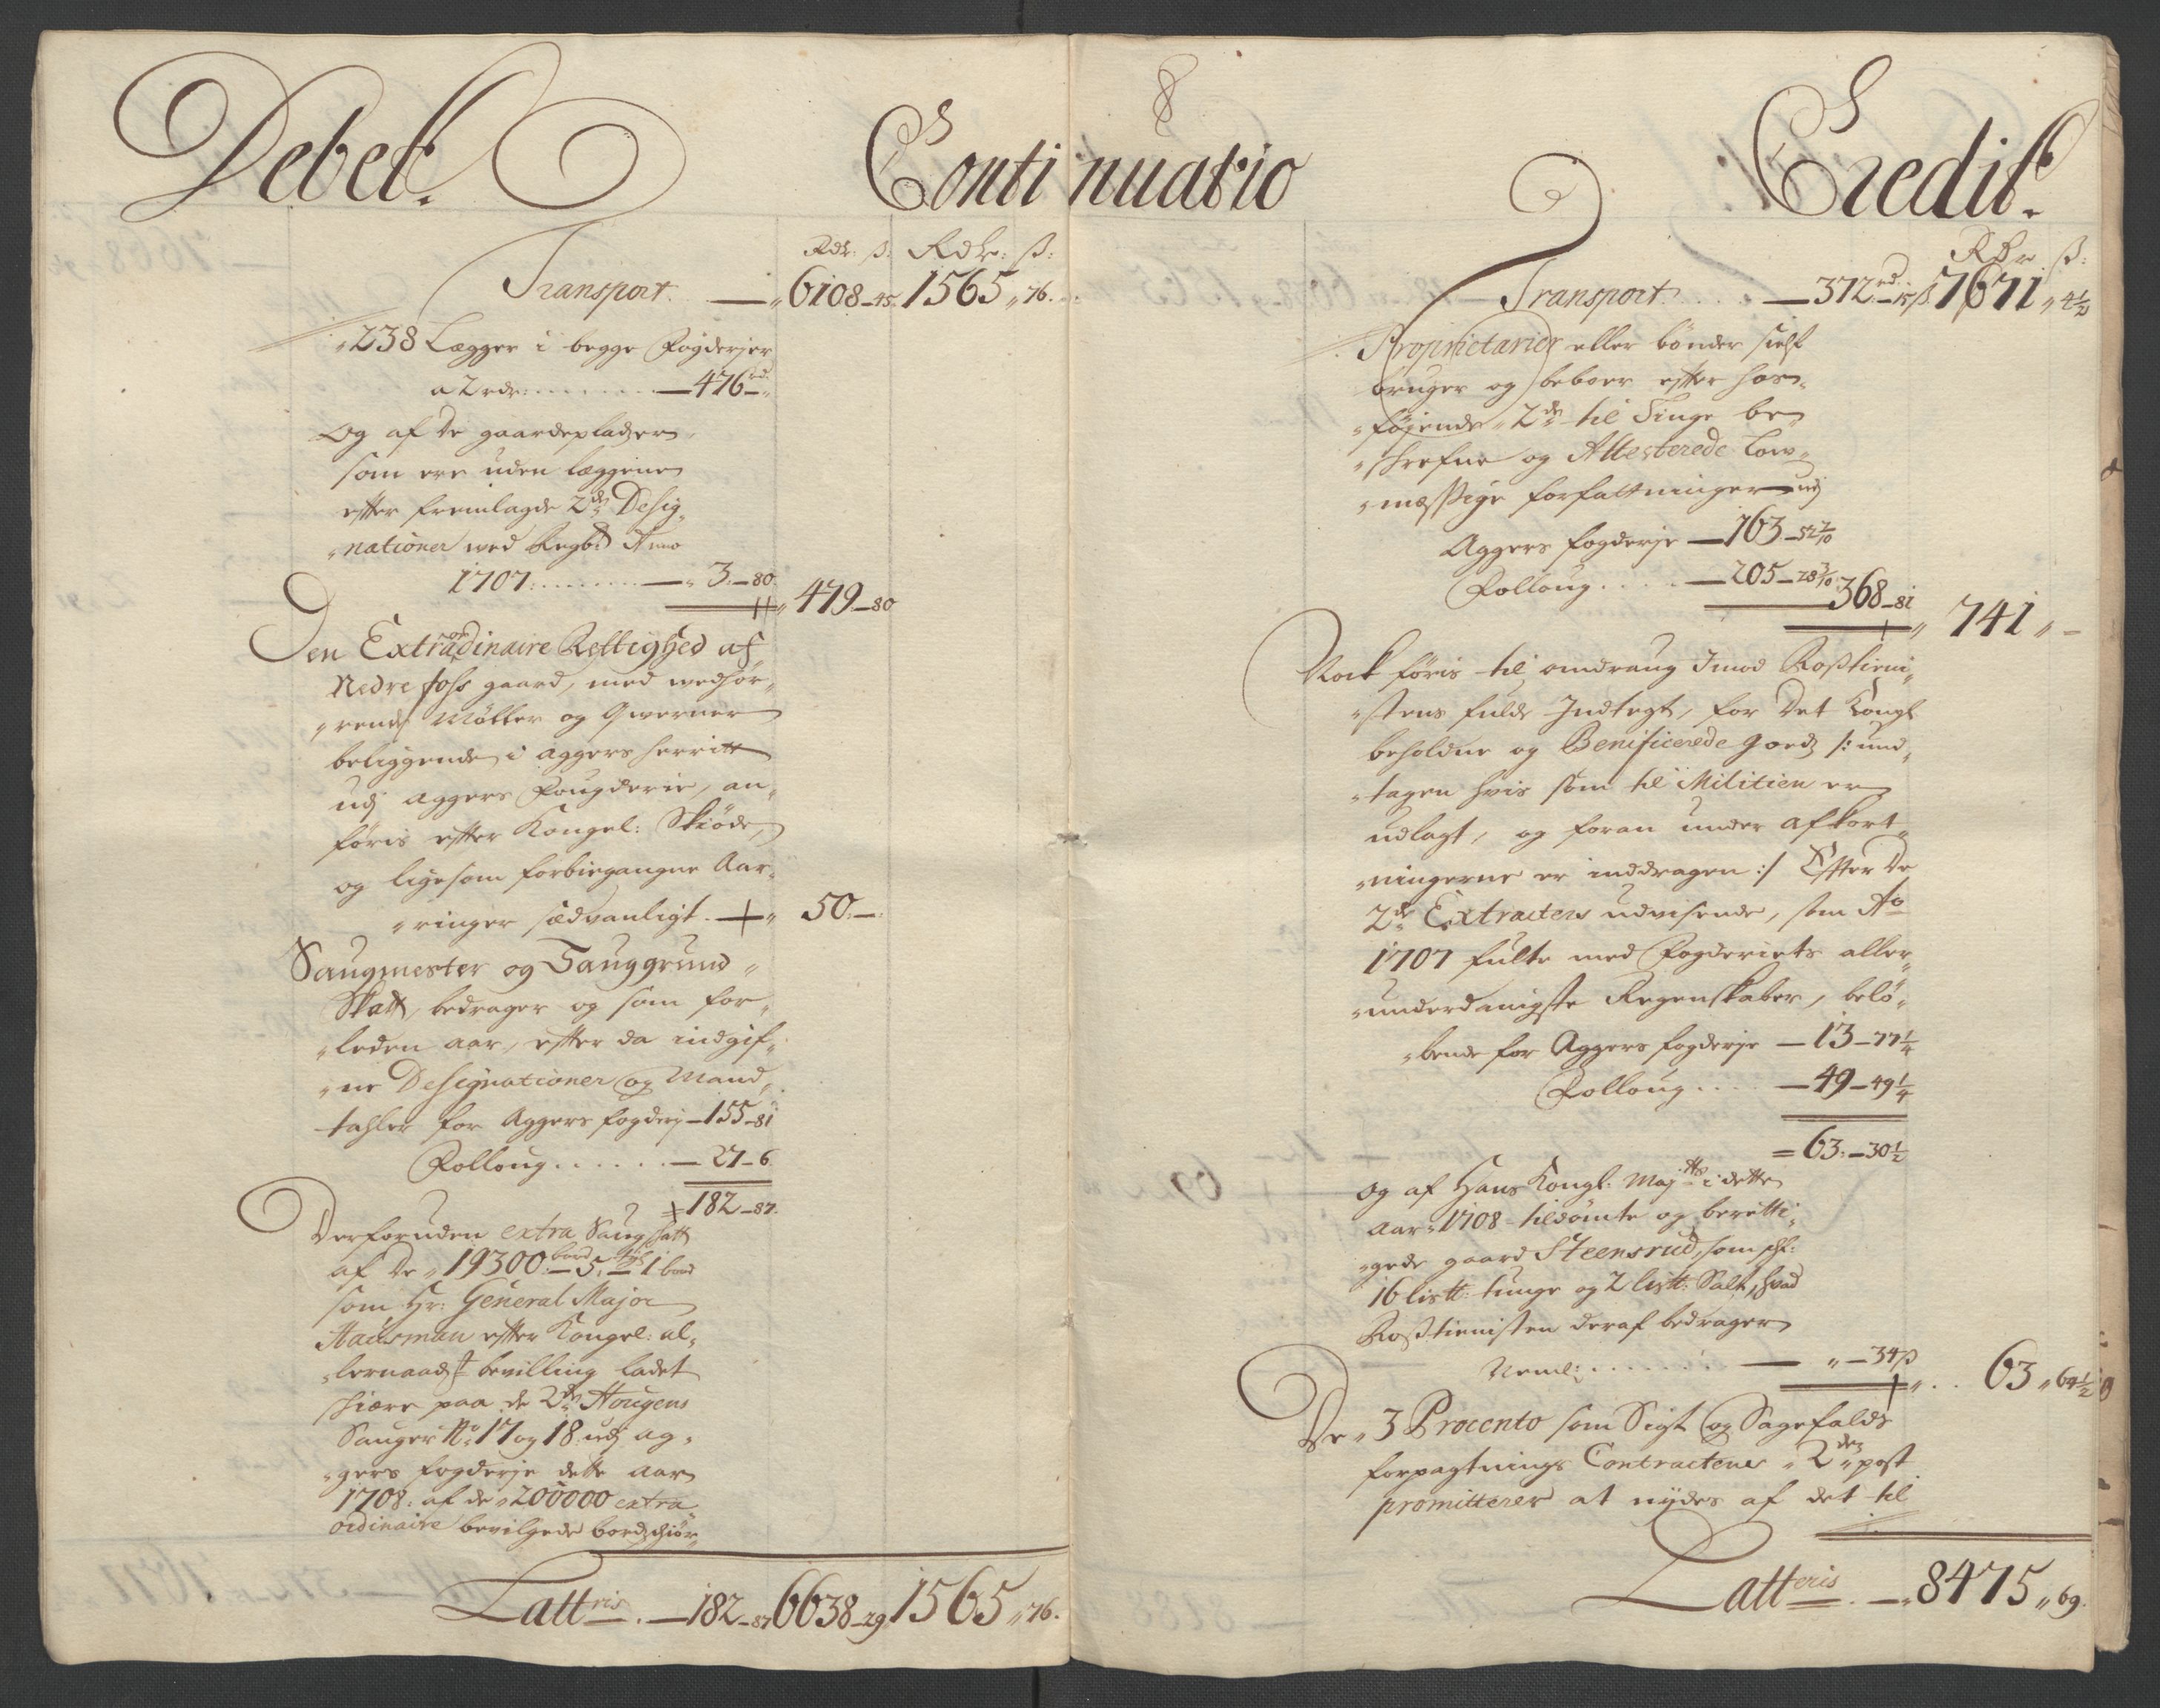 8
Debet.
Continuatio
Rdr: ß: Rdr: ß:
Transport. — „6108–45. 1565„76.
„238 Lægger i begge Fogderier
a 2 rdr: . . . . . . . — 476 rd –„
Og af de gaardepladzer
som ere uden læggene
efter fremlagde 2de Desig„
„nationer med Regb: Anno
1707: . . . . . . . — „ 3. – 80. „ 479 – 80
Den Extraordinaire Rettighed af
Nedre Foss gaard, med wedhør„
„rende Møller og Qwerner
beliggende i Aggers herritt
udj Aggers Fougderie, an„
føris efter Kongel: Skiøde,
og ligesom forbiegangne Aar„
„ringer sædvanligt. — „ 50:–:
Saugmester og Sauggrund„
Skatt, bedrager og som for„
„leden aar, efter da indgif„
„ne Designationer og Mand„
tahler for Aggers fogderj – 155 – 81
Folloug . . . . . . — 27 – 6.
182 – 87.
Derforuden extra Saug skatt
af de „19300. bord – 5. – 1 bord
som Hr: General Major
Hausman efter Kongel: al„
„lernaadst bevilling ladet
skiære paa de 2de Hougens
Sauger No: 17 og 18. udj Ag„
„gers fogderje dette aar
1708: af de „200000 extra
ordinaire bevilgede bordskiør„
Lattris. — 182–87 6638–29 1565„76.
Credit.
Rdr ß:
Transport . . . . — 372 rd – 15 ß. 7671 „ 4½
Proprietarier eller bønder sielf
bruger og beboer efter hos„
„føjende „2de til Tinge be„
„skrefne og Attesterede Low„
„mæssige forfattninger udj
Aggers fogderje — 163 – 52 7/10
Folloug . . . . — 205 – 28 3/10 368 – 81
„ 741 „ –
Nock føris til omdraug Imod Rostieni„
„stens fulde Indtegt, for det Kongl
beholdne og Benificerede goedz /: und„
„tagen hvis som til Militien er
udlagt, og foran under afkort„
„ningerne er inddragen :/ Efter de
2de Extracters udvisende, som Ao
1707 fulte med Fogderiets aller„
„underdanigste Regenskaber, belø„
„bende for Aggers fogderje — 13 – 77¼
Folloug . . . . — 49 – 49¼
= 63: – 30½
og af Hans Kongl: Maj:tts i dette
Aar „1708 tildømte og beretti„
„gede gaard Steensrud, som
16 list: tunge og 2 list: Salt, hvad
Rostienisten deraf bedrager
Neml: . . . . . . — „ – 34 ß
„ . . 63 „ 64½
De „3 Procento som Sigt og Sagefalds
forpagtnings Contractens „2den post
promitterer at nydes af det til
Latteris. — „8475 „ 69.